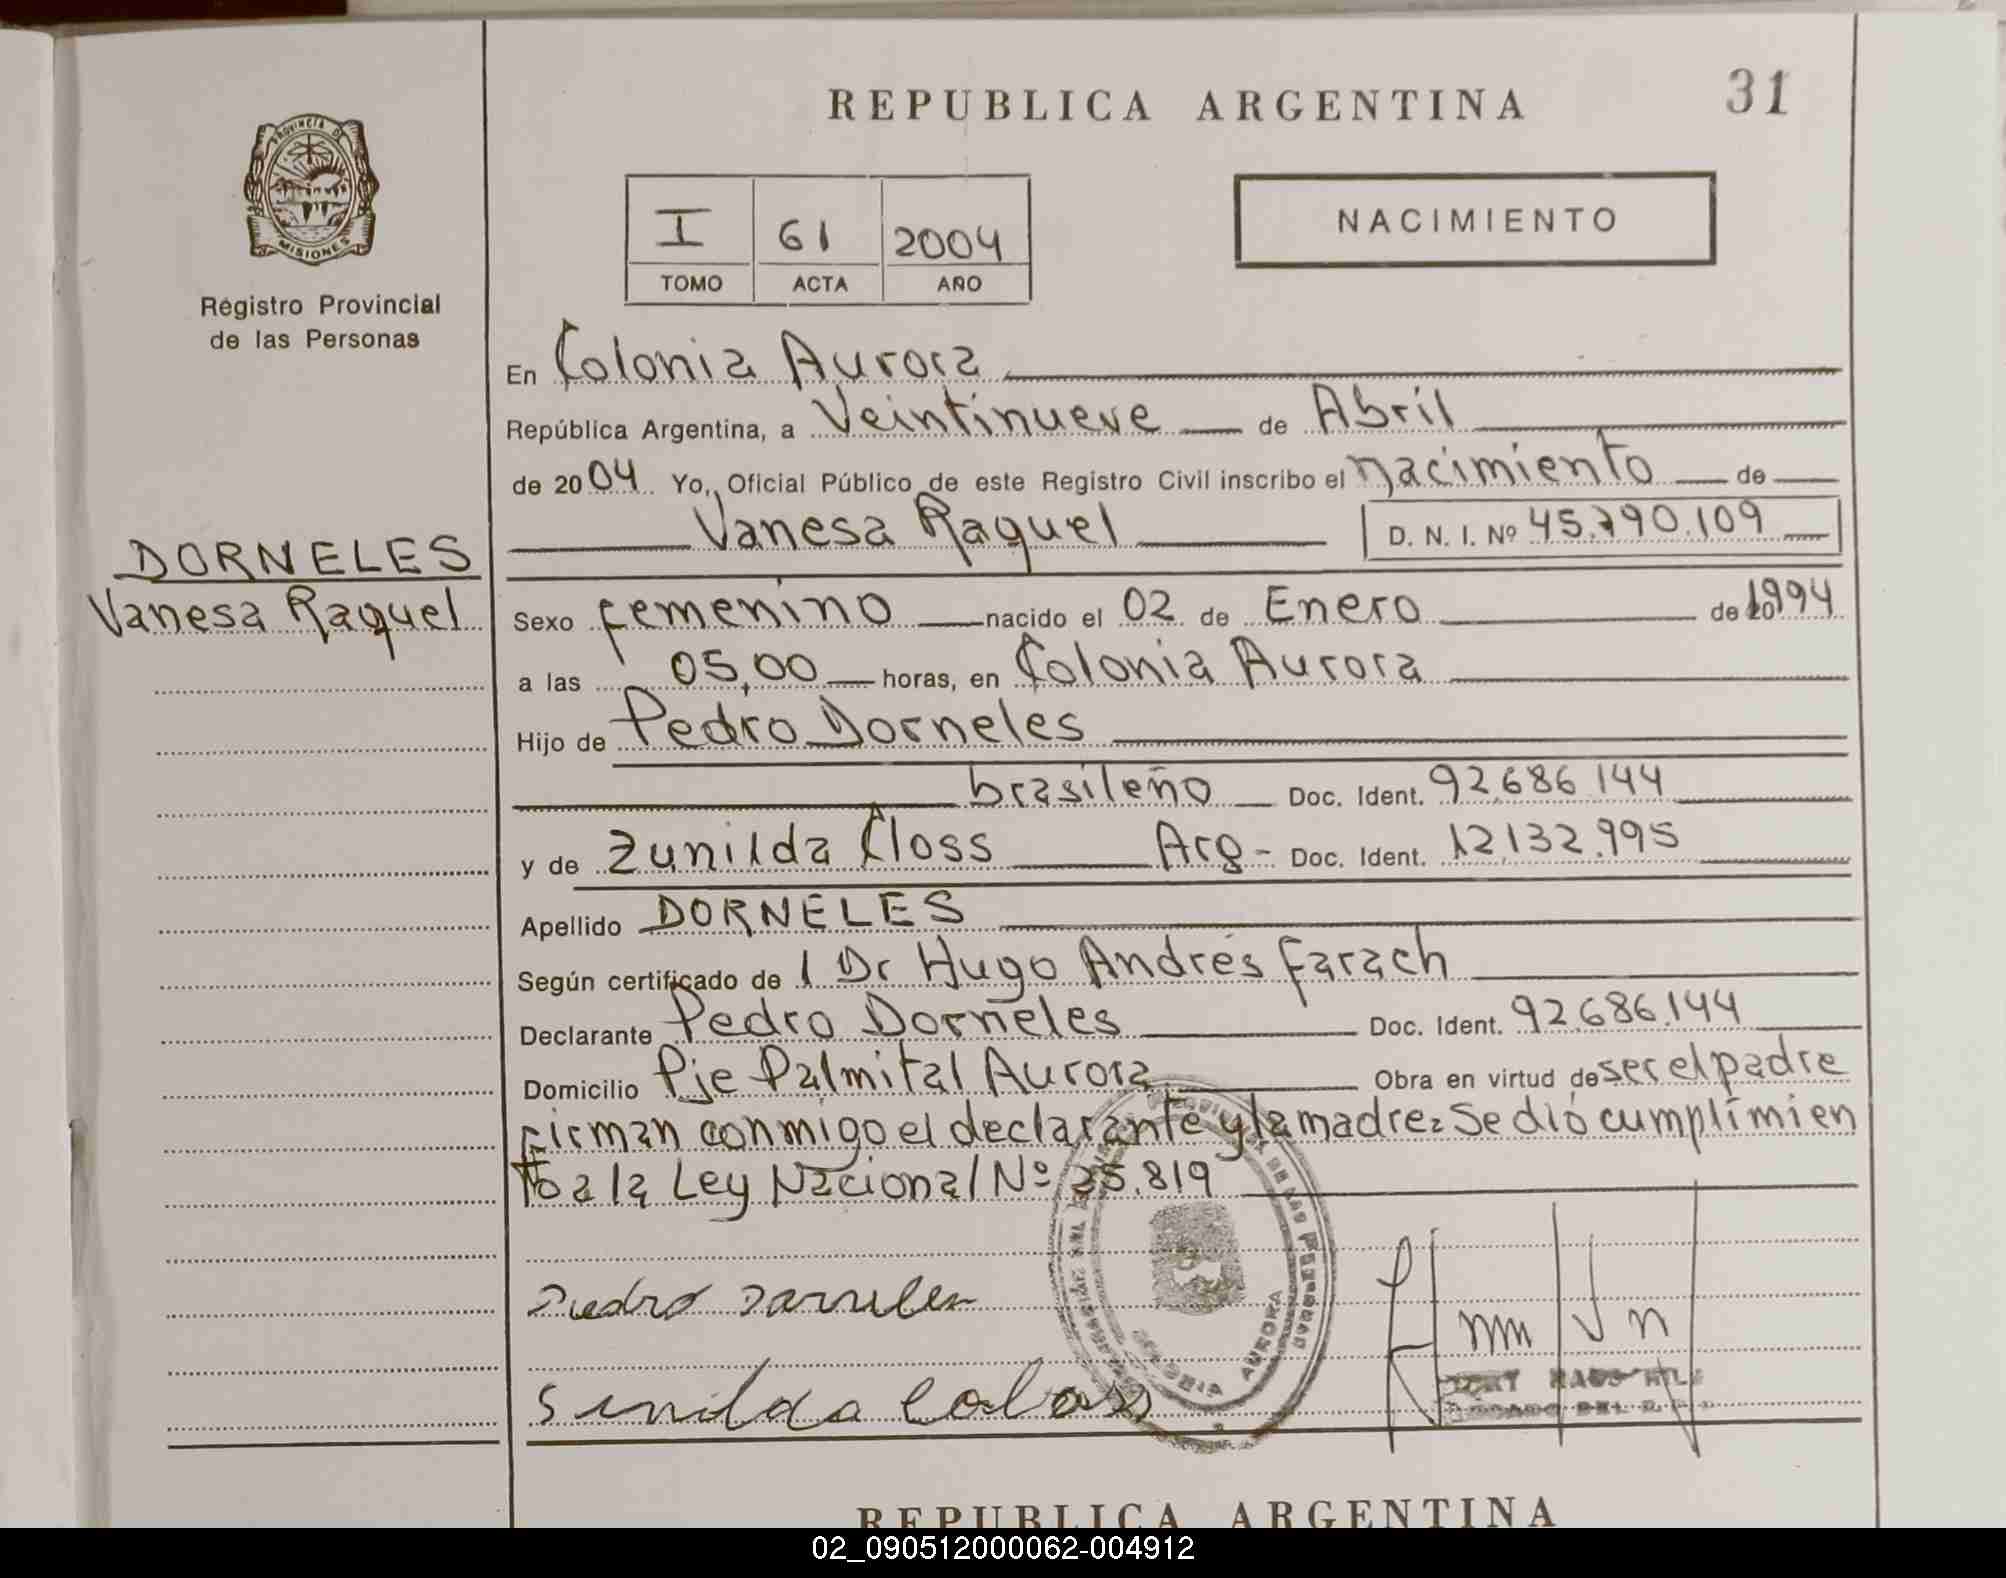 REPUBLICA ARGENTINA
31
PROVINCIA DE
MISIONES
Registro Provincial
de las Personas
I 61 2004
TOMO ACTA AÑO
NACIMIENTO
En Colonia Aurora
República Argentina, a Veintinueve de Abril
de 2004 Yo, Oficial Público de este Registro Civil inscribo el nacimiento de
Vanesa Raquel D. N. I. Nº 45.790.109
DORNELES
Vanesa Raquel
Sexo femenino nacido el 02 de Enero de 1994
a las 05,00 horas, en Colonia Aurora
Hijo de Pedro Dorneles
brasileño Doc. Ident. 92.686.144
y de Zunilda Closs Arg- Doc. Ident. 12.132.995
Apellido DORNELES
Según certificado de l Dr Hugo Andrés Farach
Declarante Pedro Dorneles Doc. Ident. 92.686.144
Domicilio Pje Palmital Aurora Obra en virtud de ser el padre
firman conmigo el declarante y la madre= Se dió cumplimien
to a la Ley Nacional Nº 25.819
COLONIA AURORA
REPUBLICA ARGENTINA
02_090512000062-004912